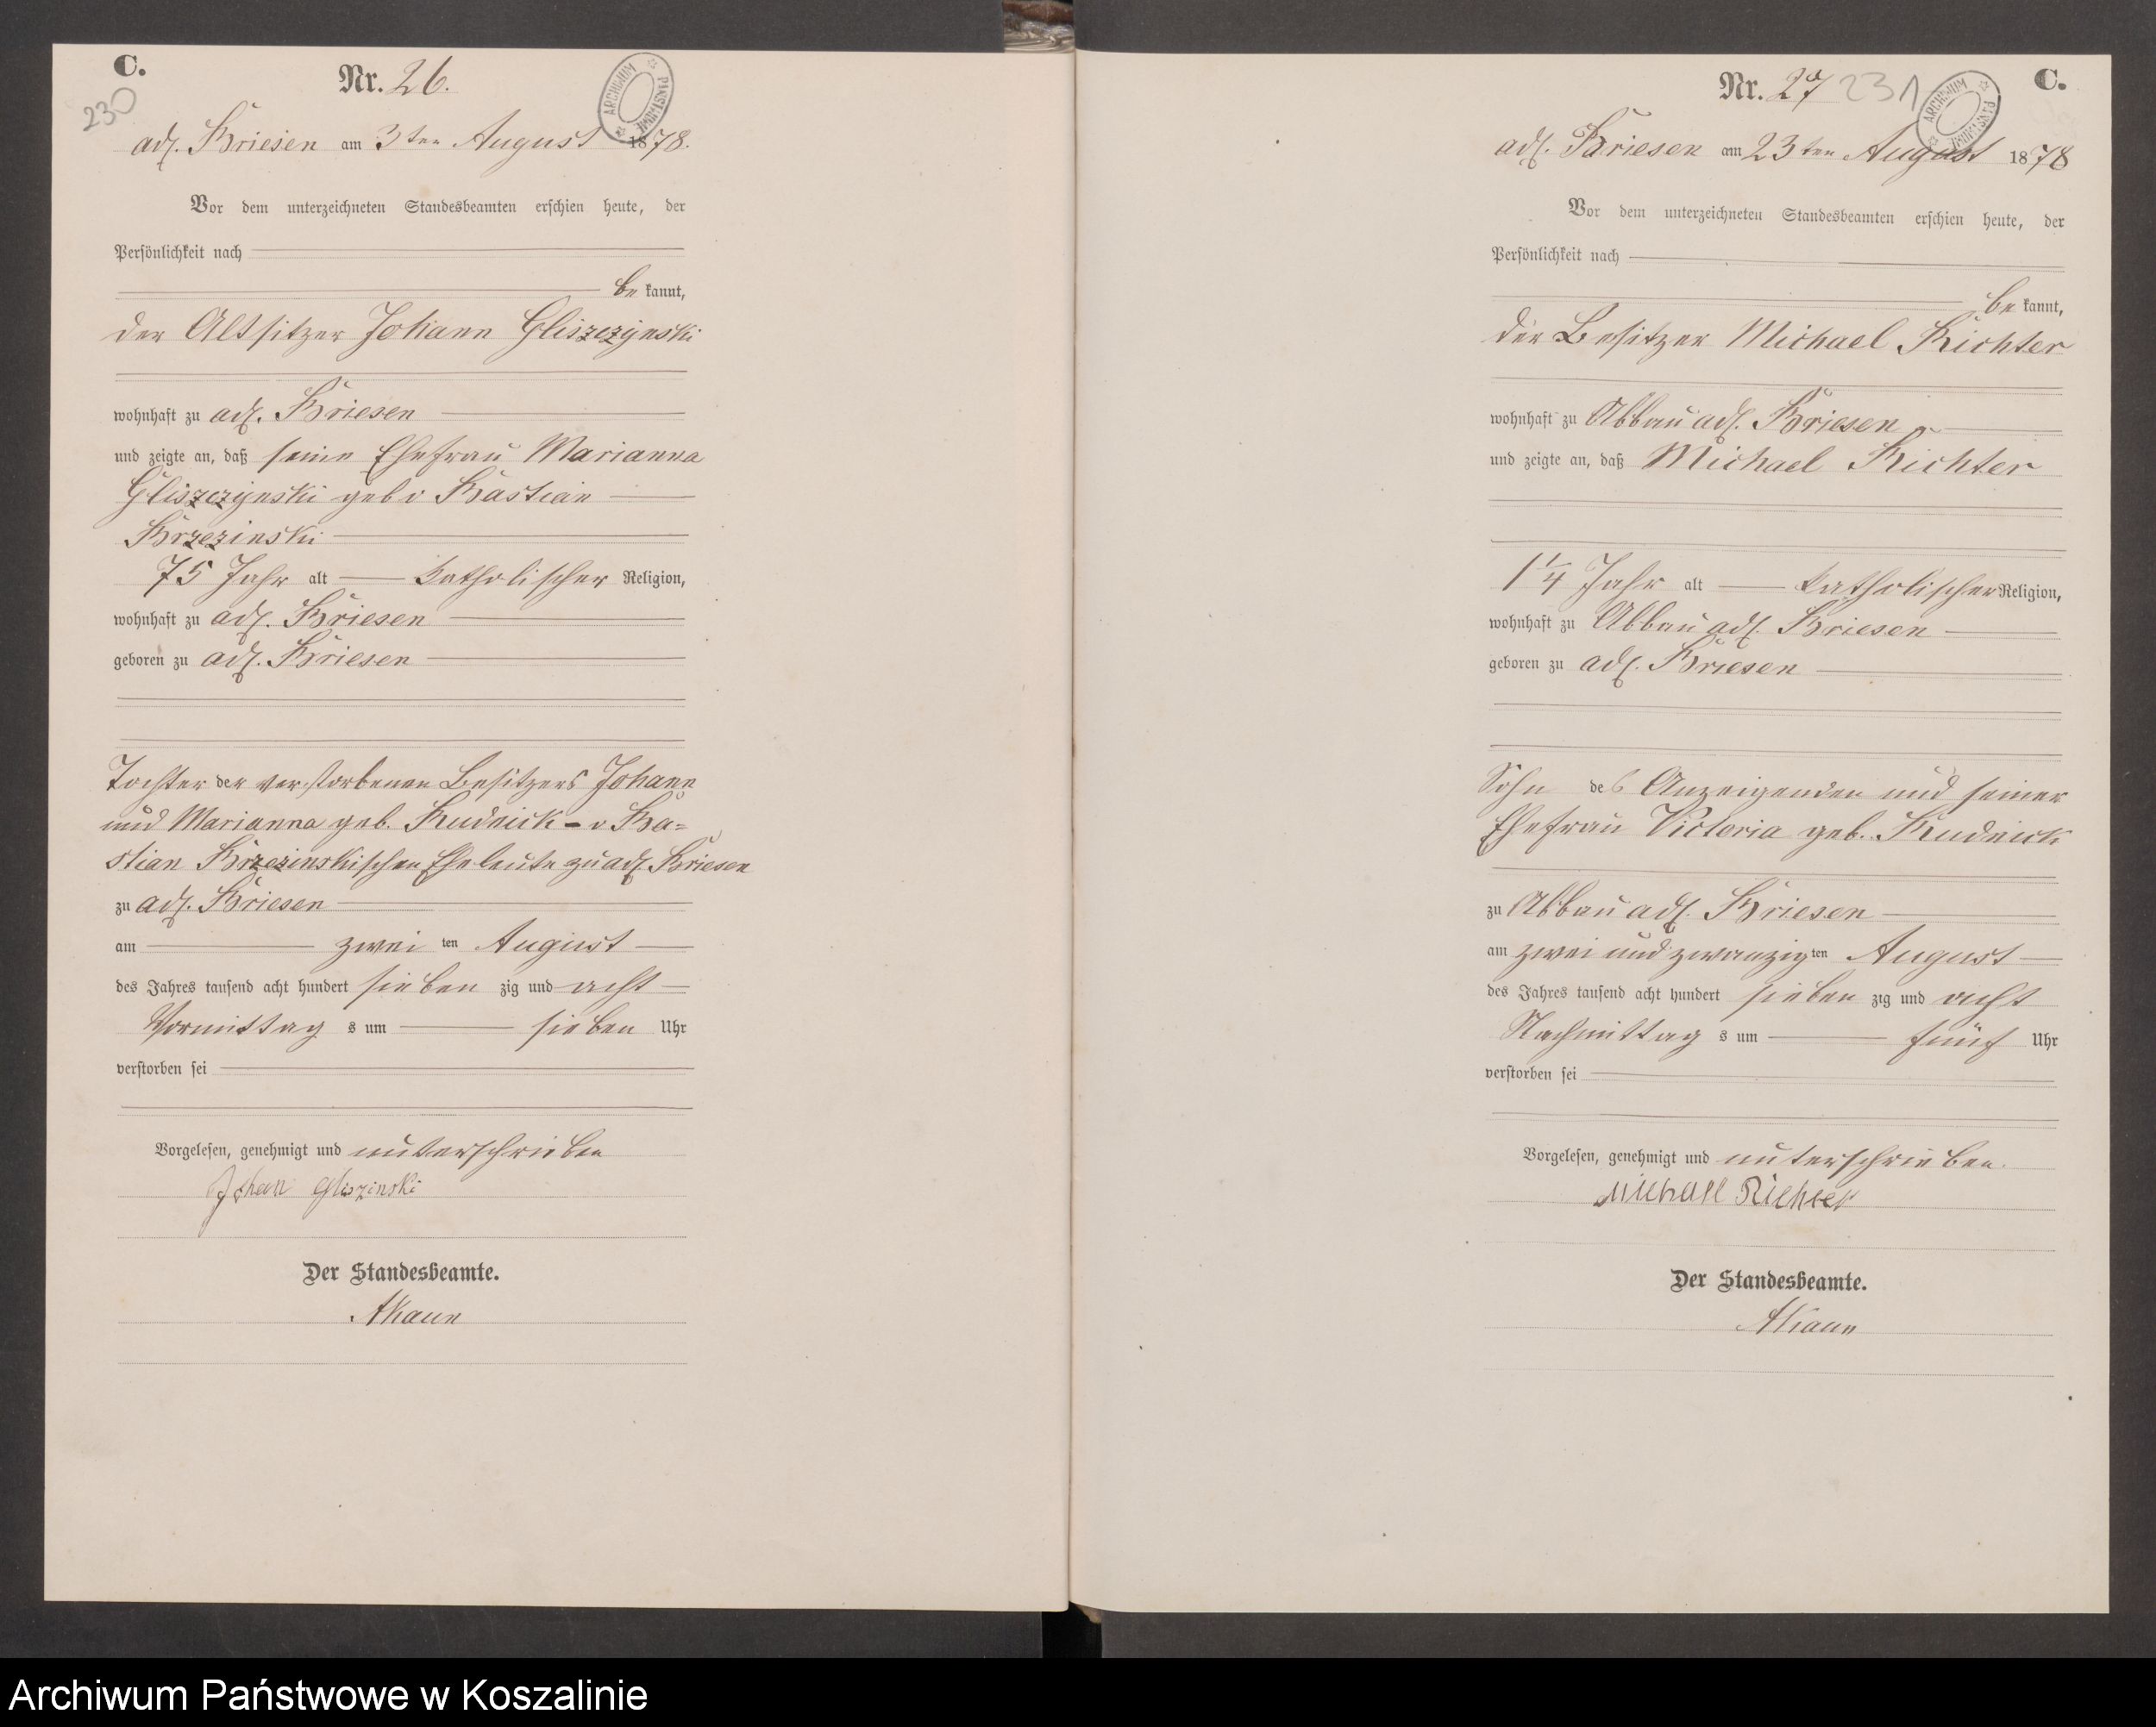 C.
Nr. 26.
230
ARCHIWUM PAŃSTWOWE
adl. Briesen am 3ten August 1878.
Vor dem unterzeichneten Standesbeamten erschien heute, der
Persönlichkeit nach
be kannt,
der Altsitzer Johann Gliszczynski
wohnhaft zu adl. Briesen
und zeigte an, daß seine Ehefrau Marianna
Gliszczynski geb v Bastian
Brzezinski
75 Jahr alt katholischer Religion,
wohnhaft zu adl. Briesen
geboren zu adl. Briesen
Tochter der verstorbenen Besitzers Johann
und Marianna geb. Rudnick - v Ba=
stian Brzezinskischen Eheleute zu adl Briesen
zu adl. Briesen
am zwei ten August
des Jahres tausend acht hundert sieben zig und acht
Vormittag s um sieben Uhr
verstorben sei
Vorgelesen, genehmigt und unterschrieben
Johan Gliszinski
Der Standesbeamte.
AKaun
C.
Nr. 27
231
ARCHIWUM PAŃSTWOWE
adl. Briesen am 23ten August 1878
Vor dem unterzeichneten Standesbeamten erschien heute, der
Persönlichkeit nach
be kannt,
der Besitzer Michael Richter
wohnhaft zu Abbau adl. Briesen
und zeigte an, daß Michael Richter
1 1/4 Jahr alt katholischer Religion,
wohnhaft zu Abbau adl. Briesen
geboren zu adl. Briesen
Sohn des Anzeigenden und seiner
Ehefrau Victoria geb. Rudnick
zu Abbau adl. Briesen
am zwei und zwanzig ten August
des Jahres tausend acht hundert sieben zig und acht
Nachmittag s um fünf Uhr
verstorben sei
Vorgelesen, genehmigt und unterschrieben.
Michael Richter
Der Standesbeamte.
AKaun
Archiwum Państwowe w Koszalinie